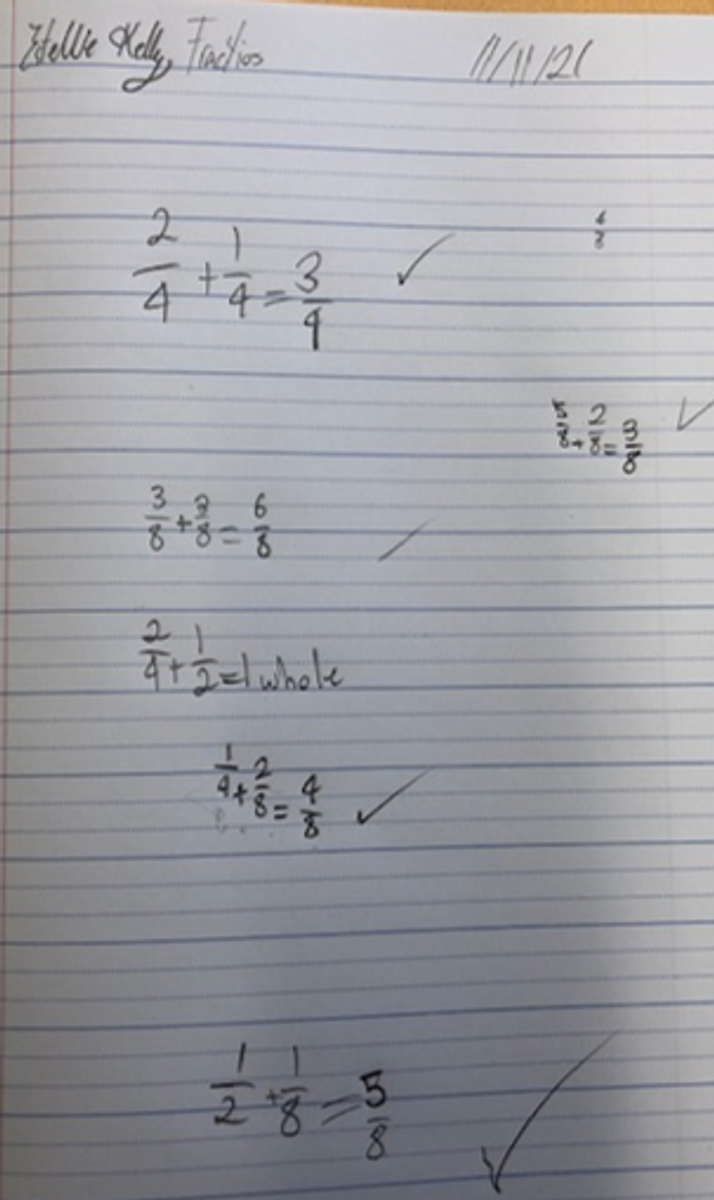 Kelly, Fractios 11/11/21
2/4 + 1/4 = 3/4
5/8 + 2/8 = 3/8
3/8 + 3/8 = 6/8
2/4 + 1/2 = 1 whole
1/4 + 2/8 = 4/8
1/2 + 1/8 = 5/8